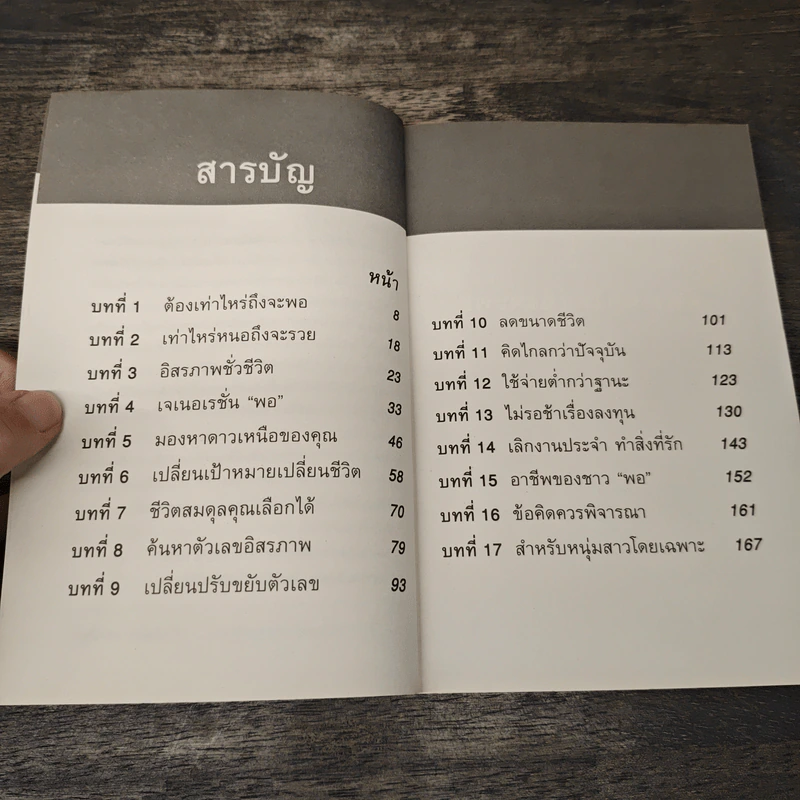 สารบัญ
หน้า
บทที่ 1 ต้องเท่าไหร่ถึงจะพอ 8
บทที่ 2 เท่าไหร่หนอถึงจะรวย 18
บทที่ 3 อิสรภาพชั่วชีวิต 23
บทที่ 4 เจเนอเรชั่น “พอ” 33
บทที่ 5 มองหาดาวเหนือของคุณ 46
บทที่ 6 เปลี่ยนเป้าหมายเปลี่ยนชีวิต 58
บทที่ 7 ชีวิตสมดุลคุณเลือกได้ 70
บทที่ 8 ค้นหาตัวเลขอิสรภาพ 79
บทที่ 9 เปลี่ยนปรับขยับตัวเลข 93
บทที่ 10 ลดขนาดชีวิต 101
บทที่ 11 คิดไกลกว่าปัจจุบัน 113
บทที่ 12 ใช้จ่ายต่ำกว่าฐานะ 123
บทที่ 13 ไม่รอช้าเรื่องลงทุน 130
บทที่ 14 เลิกงานประจำ ทำสิ่งที่รัก 143
บทที่ 15 อาชีพของชาว “พอ” 152
บทที่ 16 ข้อคิดควรพิจารณา 161
บทที่ 17 สำหรับหนุ่มสาวโดยเฉพาะ 167